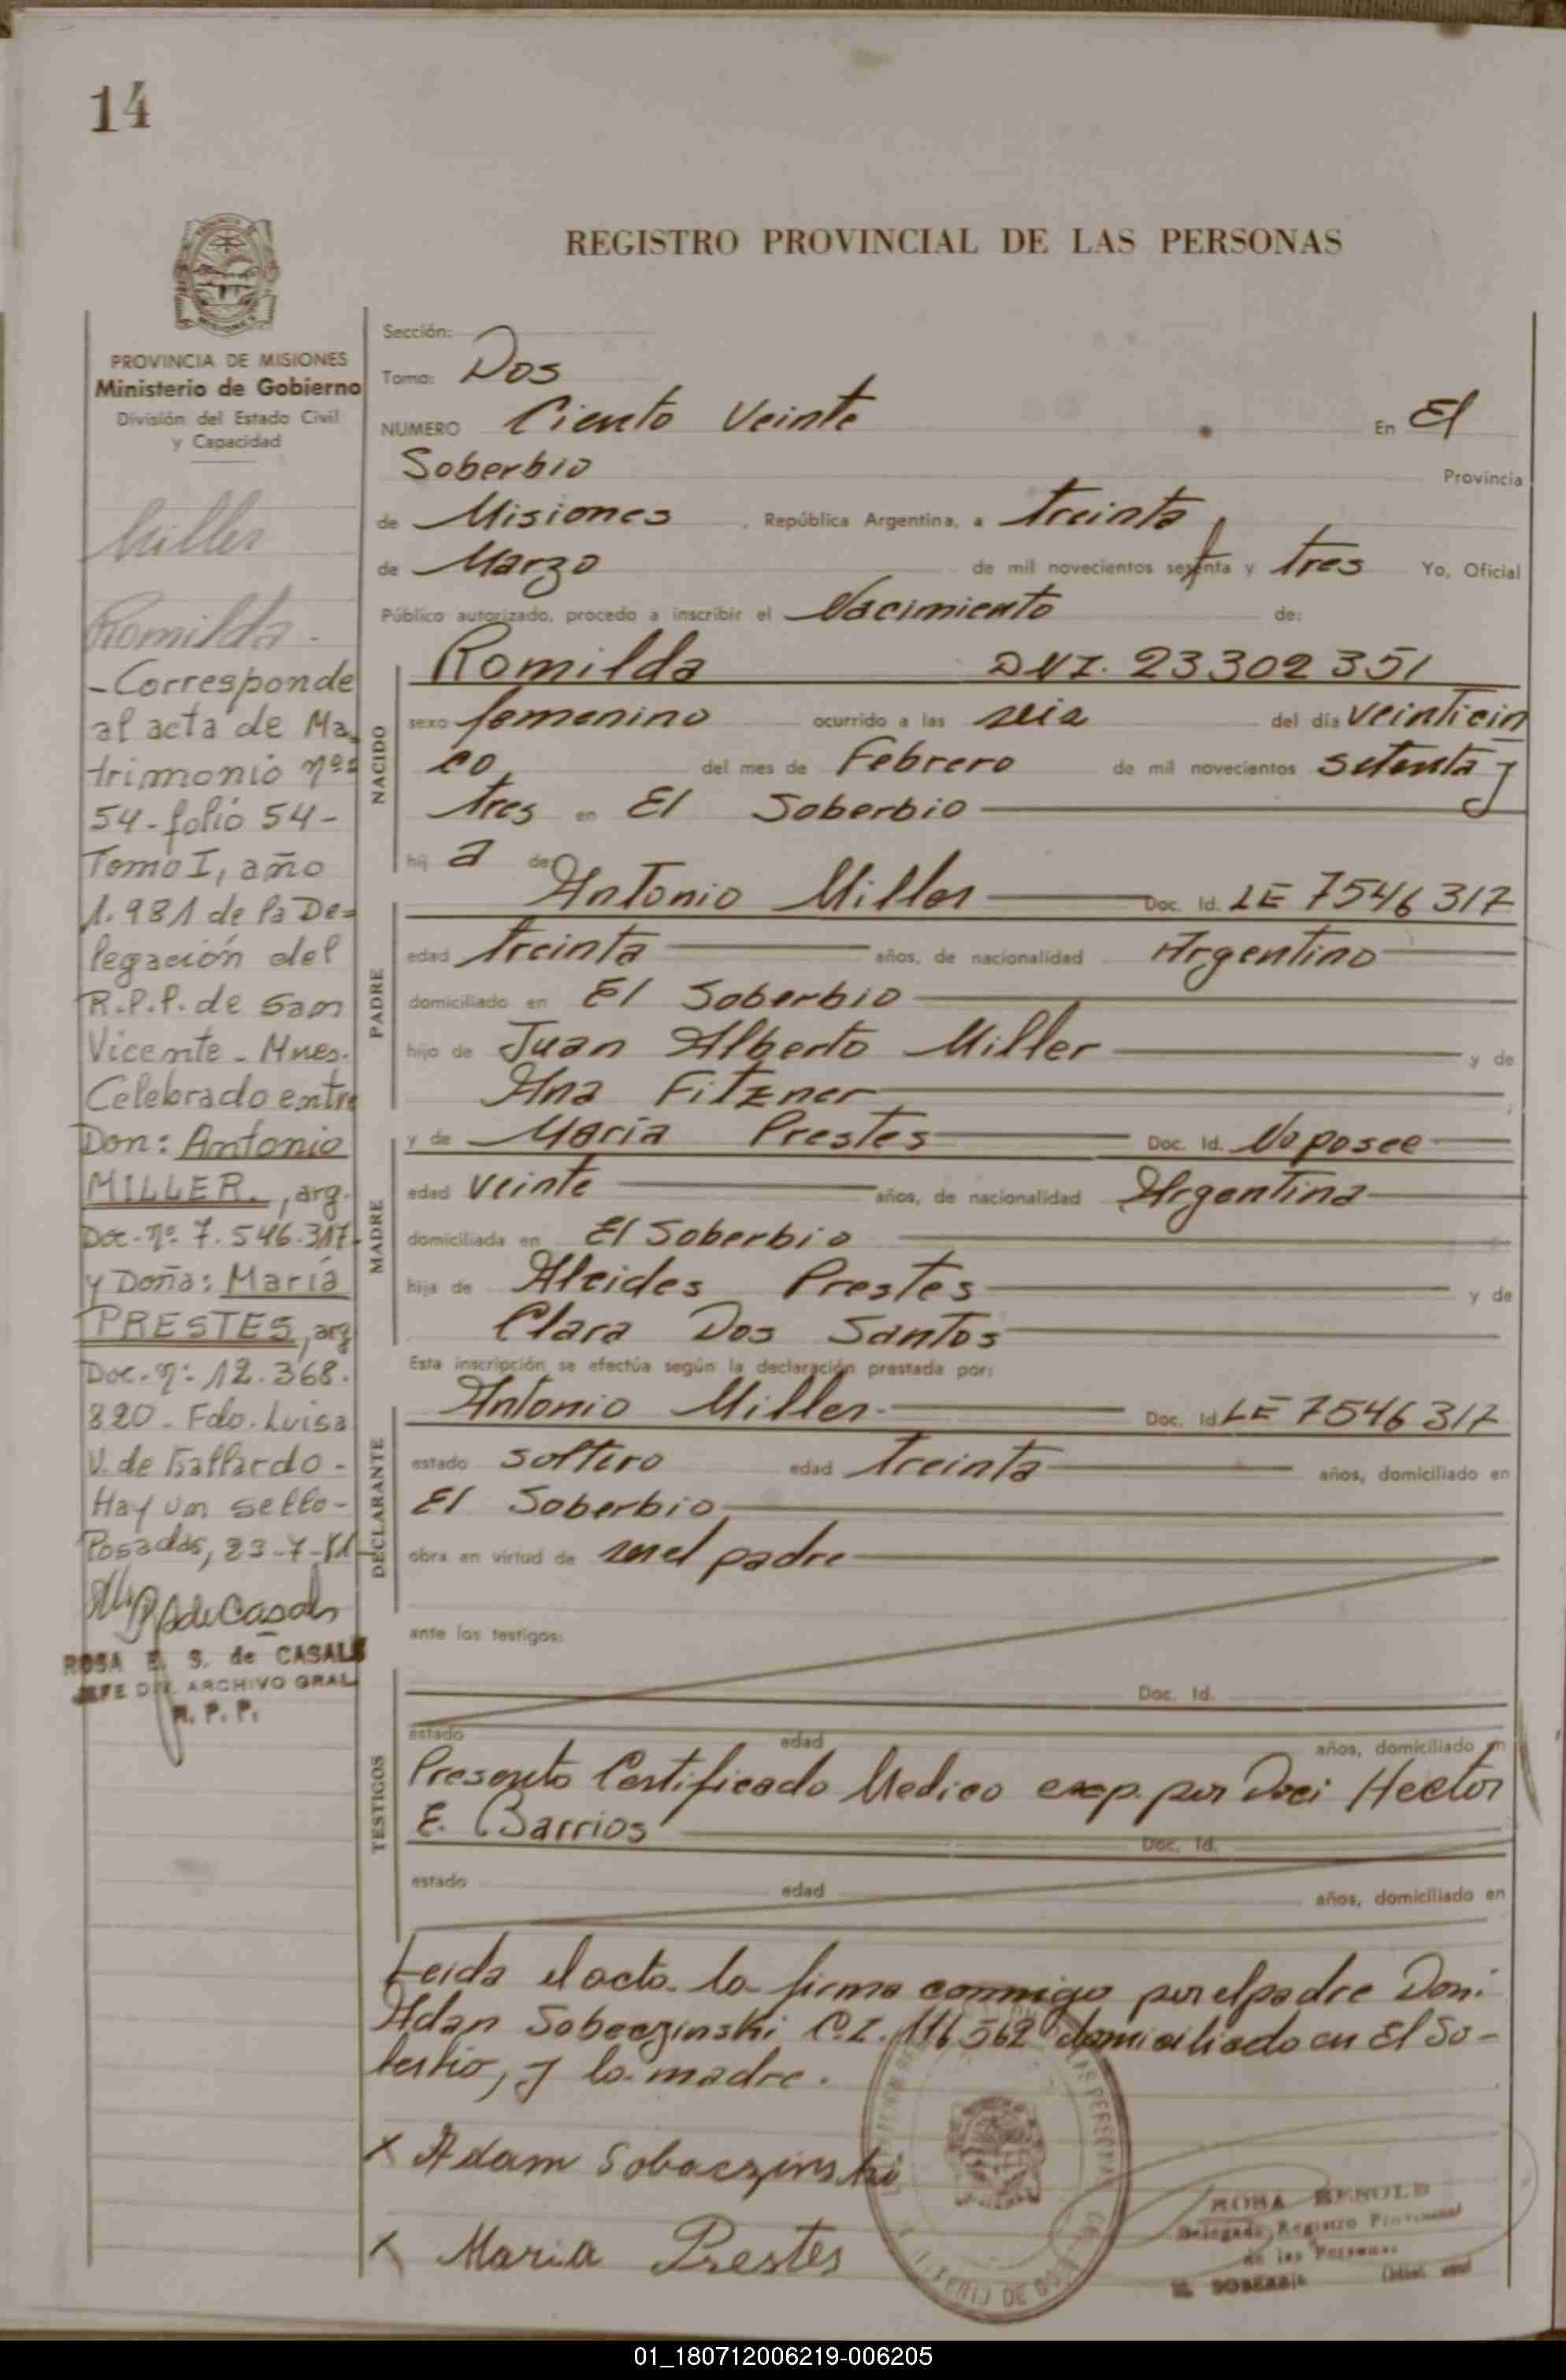 14
REGISTRO PROVINCIAL DE LAS PERSONAS
PROVINCIA DE MISIONES
Ministerio de Gobierno
División del Estado Civil
y Capacidad
Miller
Romilda -
- Corresponde
al acta de Ma
trimonio nº
54 - folio 54 -
Tomo I, año
1.981 de la De=
legación del
R.P.P. de San
Vicente - Mnes.
Celebrado entre
Don: Antonio
MILLER., arg.
Doc. nº 7.546.317-
y Doña: María
PRESTES, arg
Doc. nº: 12.368.
820 - Fdo. Luisa
V. de Gallardo -
Hay un sello -
Posadas, 23-7-81
ROSA E. S. de CASALS
JEFE DIV. ARCHIVO GRAL
R. P. P.
Sección:
Tomo: Dos
NUMERO Ciento Veinte En El
Soberbio Provincia
de Misiones, República Argentina, a treinta
de Marzo de mil novecientos setenta y tres Yo, Oficial
Público autorizado, procedo a inscribir el Nacimiento de:
NACIDO
Romilda DNI. 23302351
sexo femenino ocurrido a las seis del día veinticin
co del mes de Febrero de mil novecientos setenta y
tres en El Soberbio
hij a de
PADRE
Antonio Miller Doc. Id. LE 7546317
edad treinta años, de nacionalidad Argentino
domiciliado en El Soberbio
hijo de Juan Alberto Miller y de
Ana Fitzner
MADRE
y de María Prestes Doc. Id. No posee
edad veinte años, de nacionalidad Argentina
domiciliada en El Soberbio
hija de Alcides Prestes y de
Clara Dos Santos
Esta inscripción se efectúa según la declaración prestada por:
DECLARANTE
Antonio Miller Doc. Id. LE 7546317
estado soltero edad treinta años, domiciliado en
El Soberbio
obra en virtud de ser el padre
ante los testigos:
TESTIGOS
Doc. Id.
estado edad años, domiciliado en
Presento Certificado Medico exp. por Hector
E. Barrios
Doc. Id.
estado edad años, domiciliado en
Leida el acta la firma conmigo por el padre Don:
Adan Sobeczinski C.I. 116562 domiciliado en El So-
berbio, y la madre.
x Adam Sobaczinski
x Maria Prestes
ROSA
Delegada Registro Provincial
de las Personas
EL SOBERBIO
01_180712006219-006205